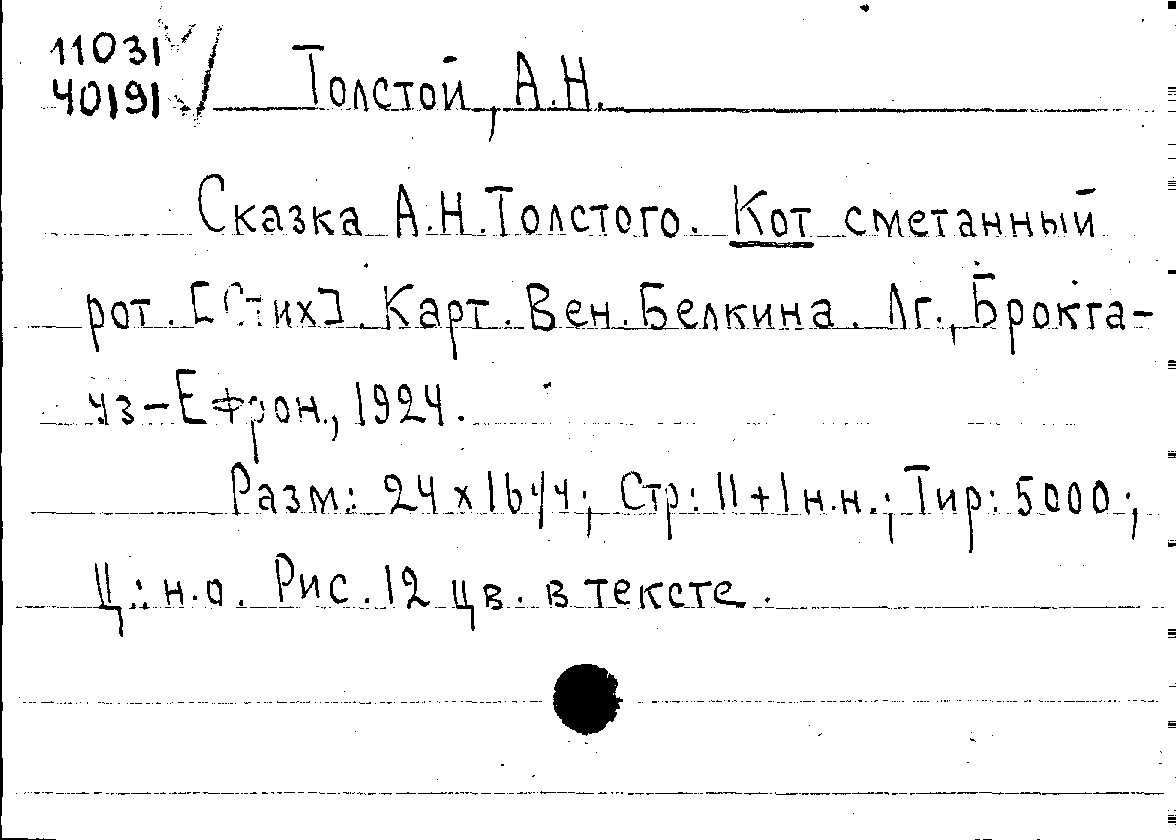 11031
40191 Толстой, А.Н.
Сказка А.Н.Толстого. Кот сметанный
рот. [Стих]. Карт. Вен. Белкина. Лг., Брокга-
уз-Ефрон., 1924.
Разм: 24 х 16 1/4; Стр: 11+1 н.н.; Тир: 5000;
Ц.: н.о. Рис. 12 цв. в тексте.